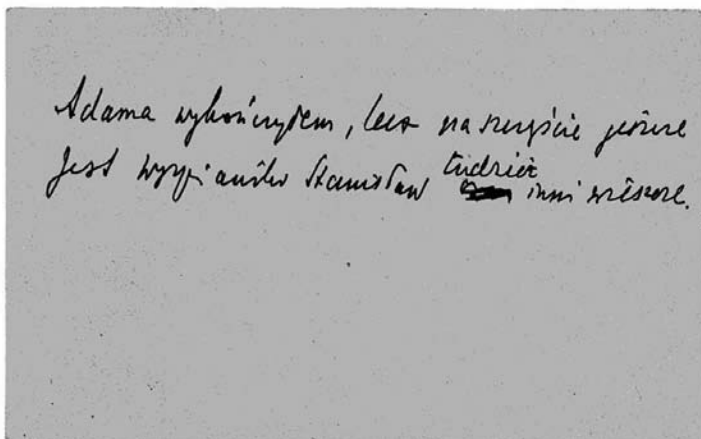 Adama wykończyłem, lecz na szczęście jeszcze
jest Wyspiański Stanisław tudzież inni wieszcze.